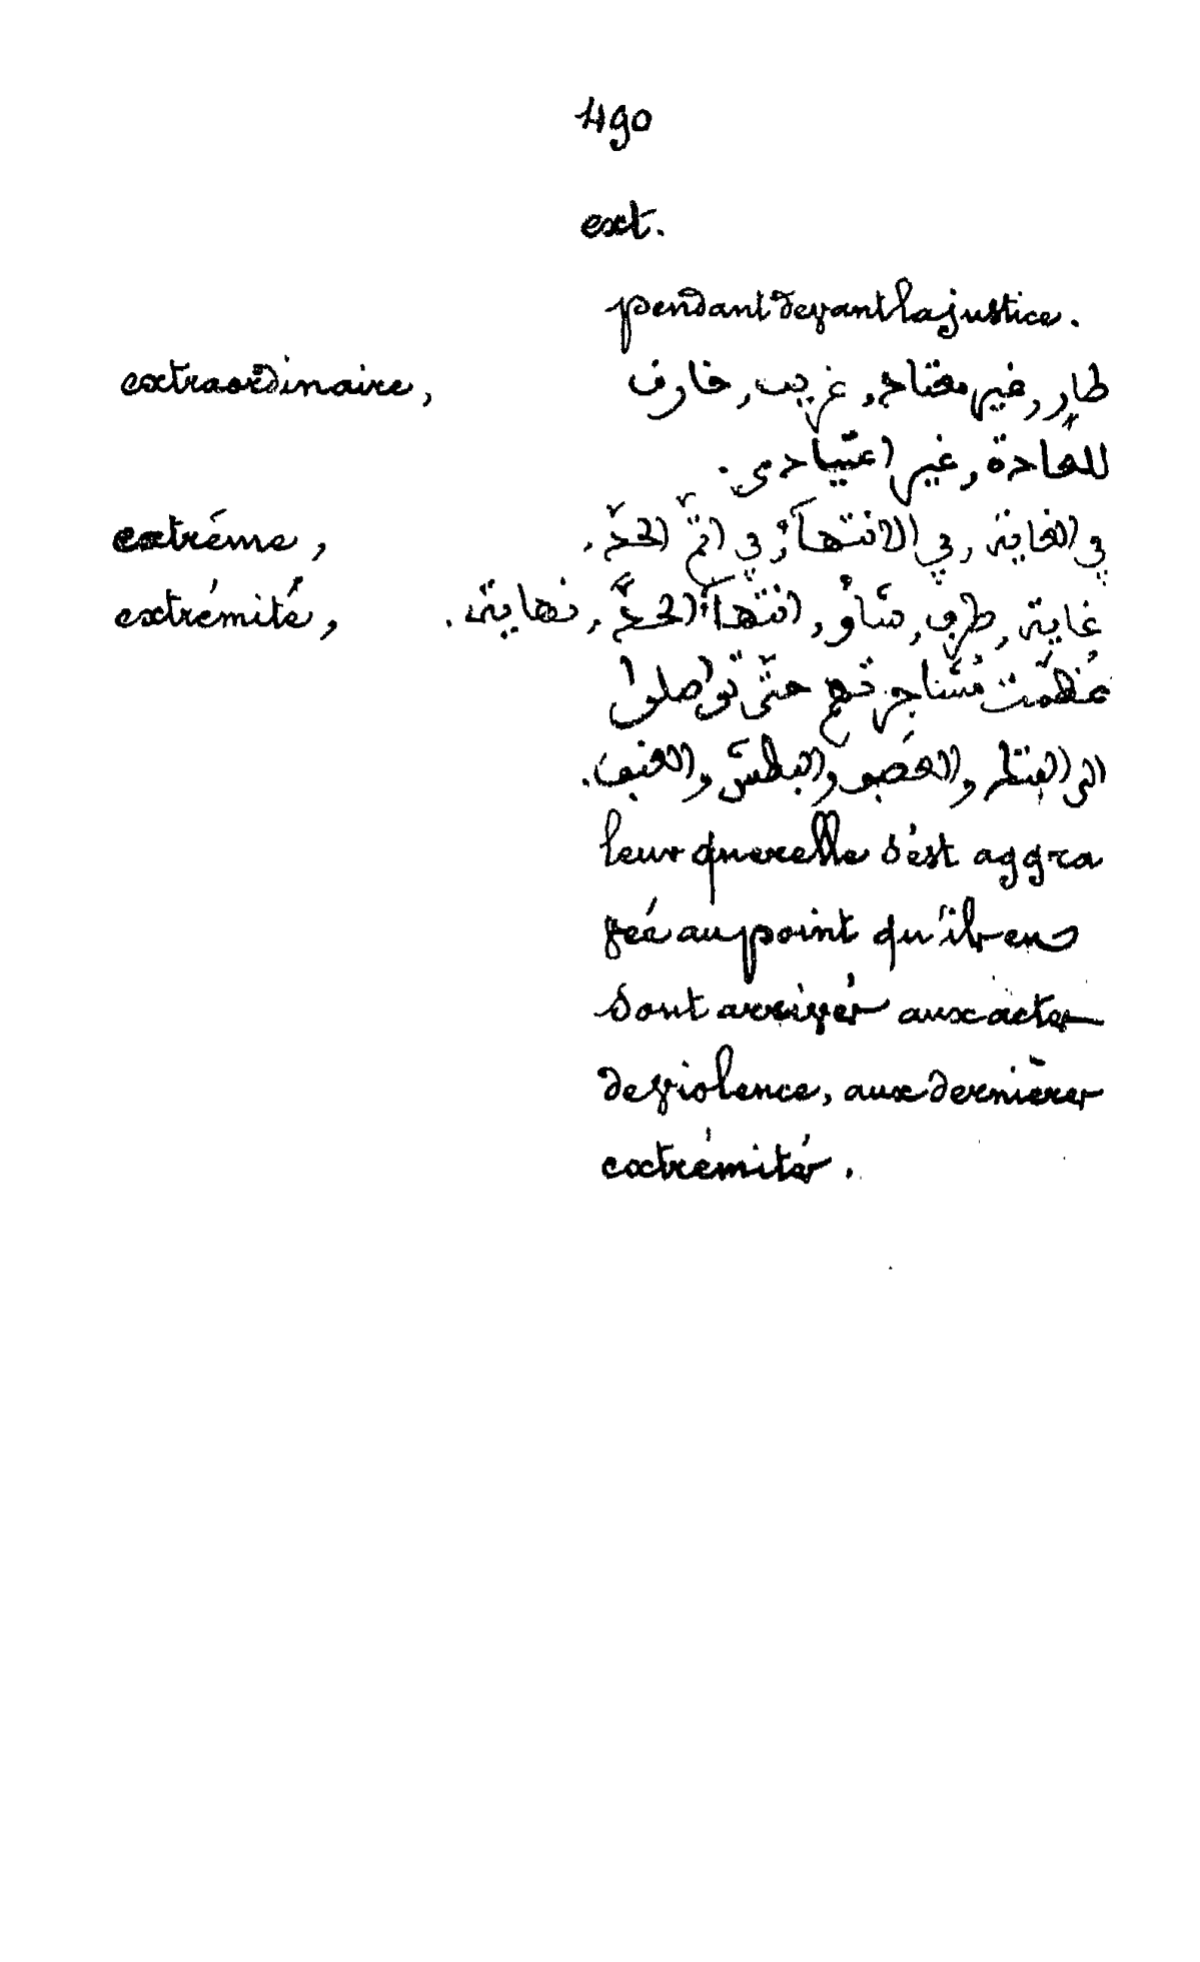 490
ext.
pendant devant la justice.
extraordinaire, طارٍ, غير معتاد, غريب, خارق
للعادة, غير اعتيادي.
extrême, في الغاية, في الانتهآء, في اتمّ الحدّ,
extrémité, غاية, طرف, شأو, انتهآء الحدّ, نهاية.
عُظمت مُشَاجرتهم حتّى تواصلوا
الى الفتك والغضب والبطش والعنف.
leur querelle s'est aggra
vée au point qu'ils en
sont arrivés aux actes
de violence, aux dernières
extrémités.